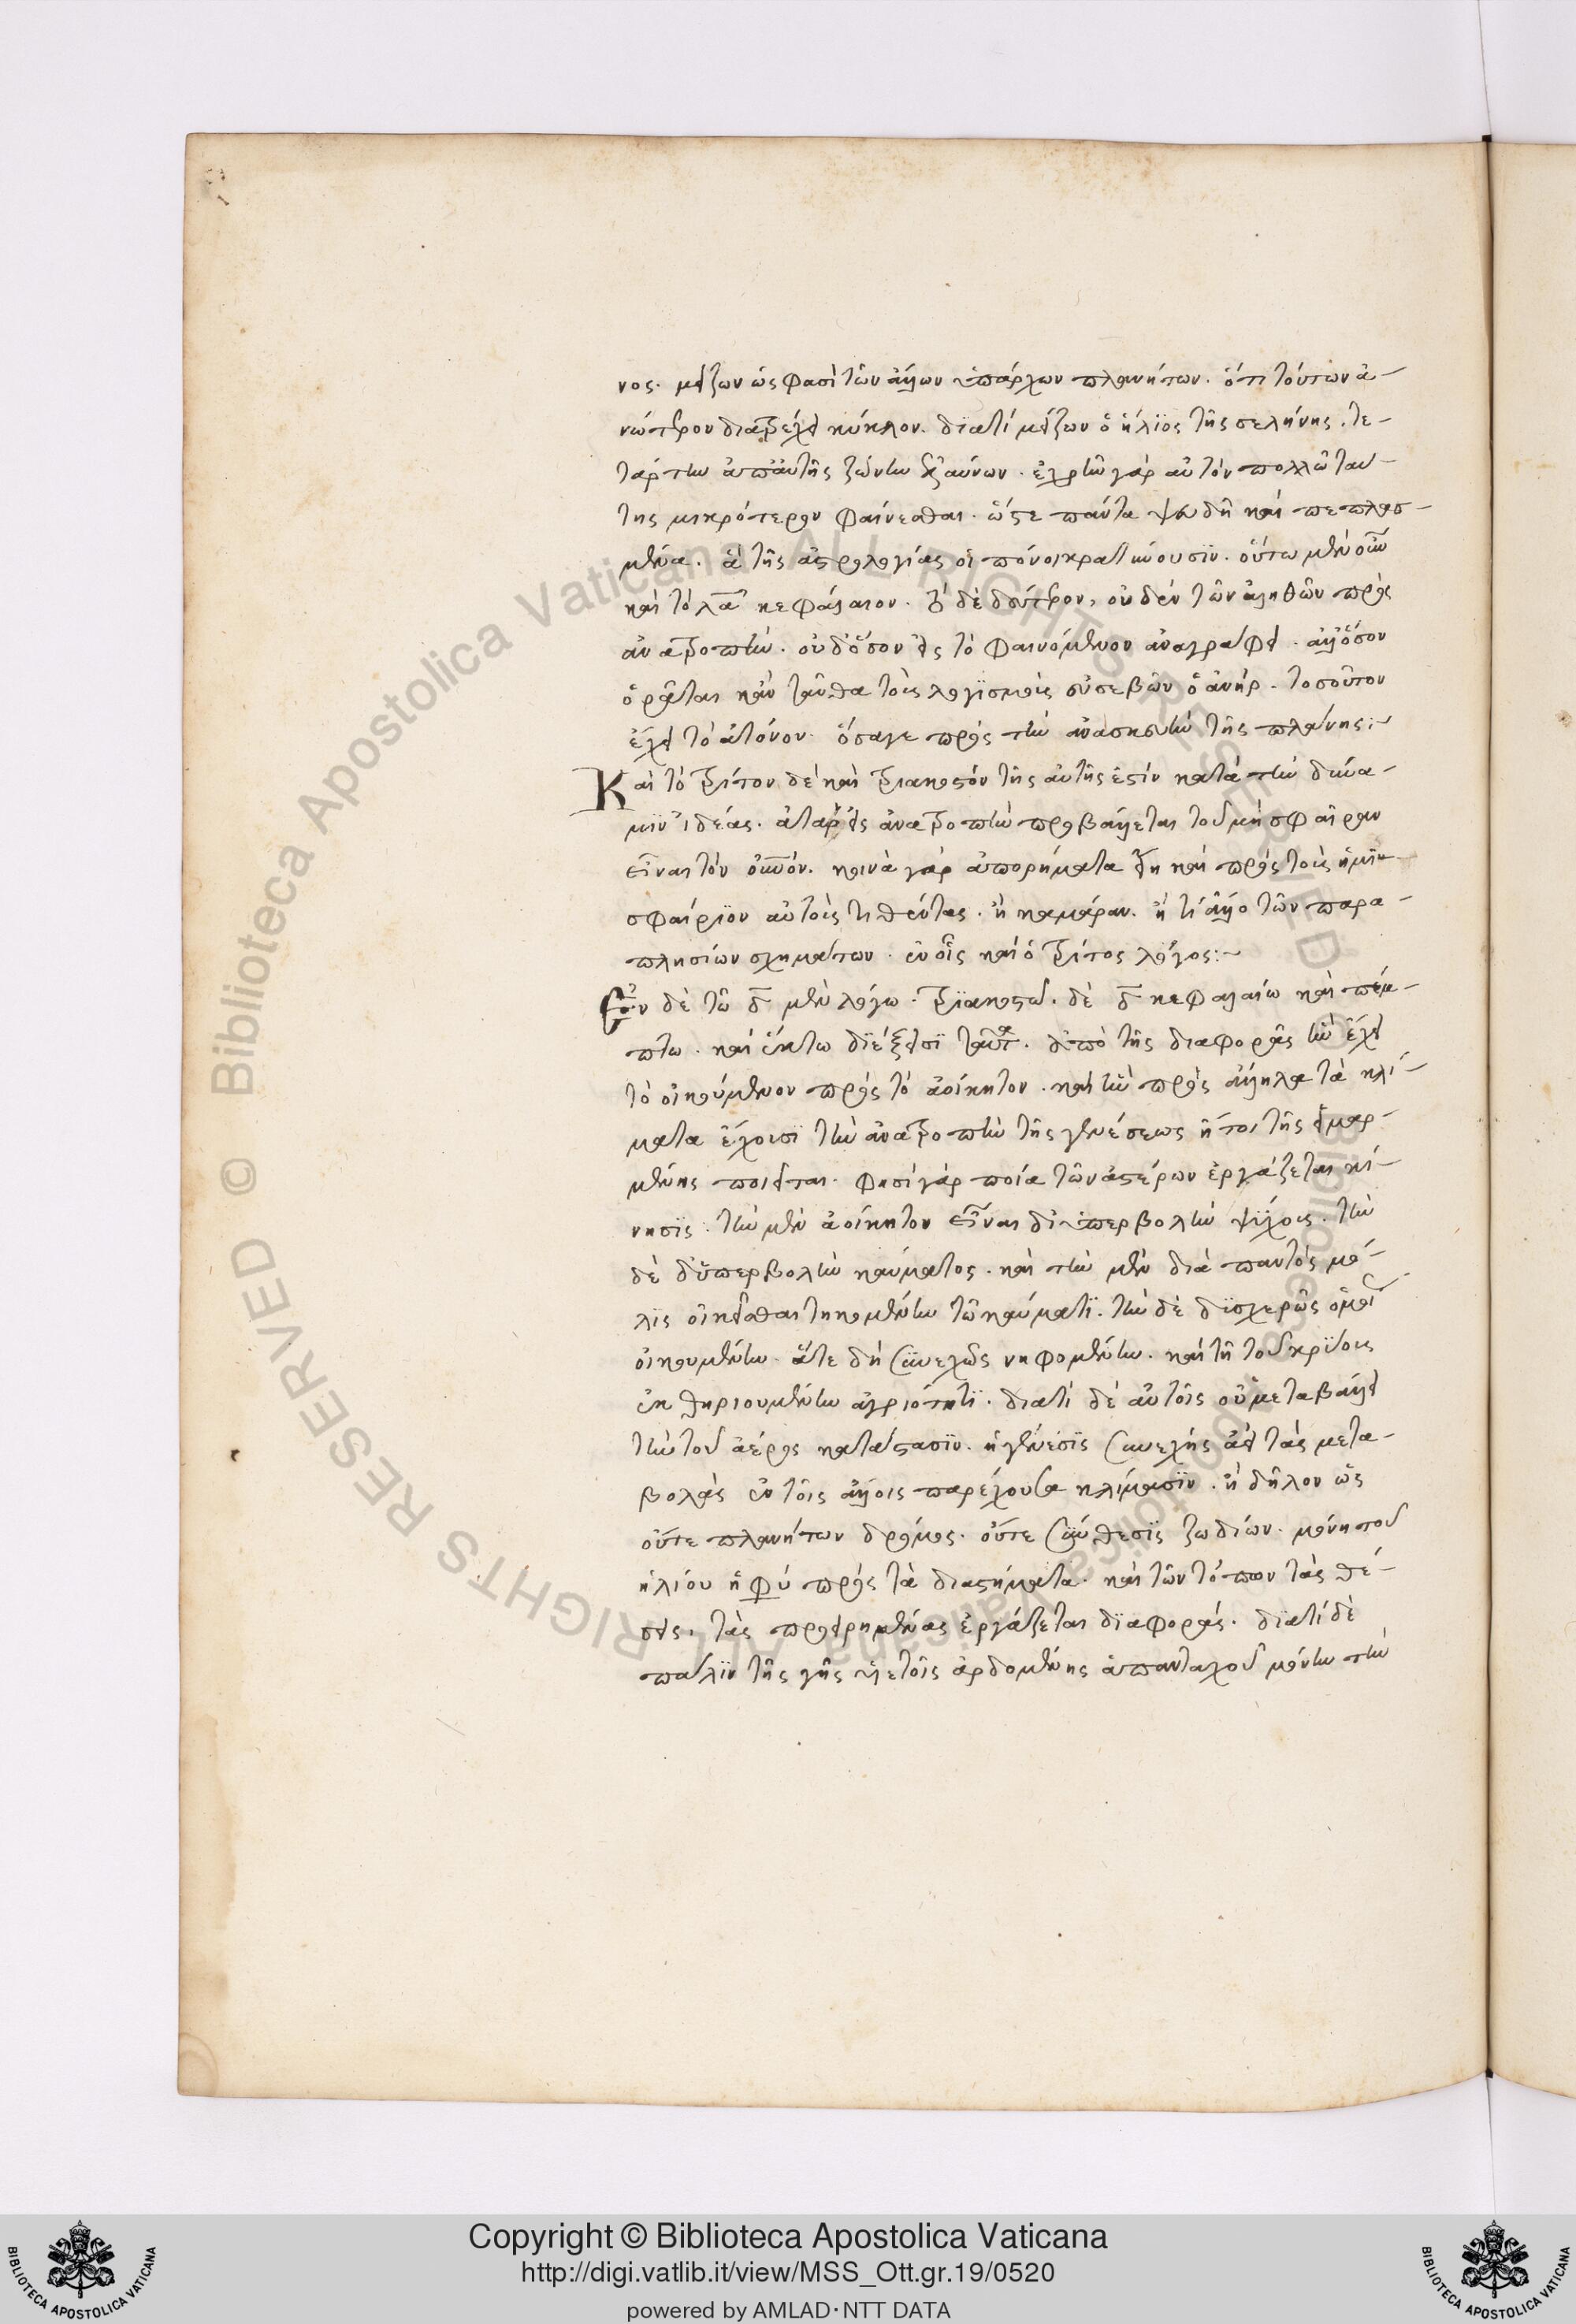 νος. μείζων ὡς φασὶ τῶν ἄλλων ὑπάρχων πλανήτων. ὅτι τούτων ἀ-
νώτερον διατρέχει κύκλον. διατί μείζων ὁ ἥλϊος τῆς σελήνης. τε-
τάρτην ἀπ' αὐτῆς ζώνην ἐλαύνων. ἐχρῆν γὰρ αὐτὸν πολλῶ ταύ-
της μικρότερον φαίνεσθαι. ὥστε πάντα ψευδῆ καὶ πεπλασ-
μένα. ἃ τῆς ἀστρολογίας οἱ πόνοι κρατύνουσϊν. οὕτω μὲν οὖν
καὶ τὸ λα κεφάλαιον. τὸ δὲ δεύτερον, οὐδὲν τῶν ἀληθῶν πρὸς
ἀνατροπὴν. οὐδ' ὅσον εἰς τὸ φαινόμενον ἀναγράφει. ἀλλ' ὅσον
ὁρᾶται κἀν ταῦθα τοῖς λογϊσμοῖς εὐσεβῶν ὁ ἀνήρ. τοσοῦτον
ἔχει τὸ ἄτονον. ὅσαγε πρὸς τὴν ἀνασκευὴν τῆς πλάνης:~
Καὶ τὸ τρίτον δὲ καὶ τριακοστόν τῆς αὐτῆς ἐστὶν κατὰ τὴν δύνα-
μϊν ἰδέας. ἀταρ εἰς ἀνατροπὴν προβάλλεται τοῦ μὴ σφαῖραν
εἶναι τὸν οὐνόν. κοινὰ γὰρ ἀπορήματα κεῖται καὶ πρὸς τοὺς ἡμϊ-
σφαίρϊον αὐτοῖς τιθέντας. ἢ καμάραν. ἤ τι ἄλλο τῶν παρα-
πλησίων σχημάτων. ἐν οἷς καὶ ὁ τρίτος λόγος:~
Ἐν δὲ τῶ δ μὲν λόγω. τρϊακοστῶ. δὲ δ κεφαλαίω καὶ πέμ-
πτω. καὶ ἕκτω διέξεισϊ ταῦτα. ἀπὸ τῆς διαφορᾶς ἣν ἔχει
τὸ οἰκούμενον πρὸς τὸ ἀοίκητον. καὶ ἣν πρὸς ἄλληλα τὰ κλί-
ματα ἔχουσϊ τὴν ἀνατροπὴν τῆς γενέσεως ἤτοι τῆς εἱμαρ-
μένης ποιεῖται. φησὶ γὰρ ποία τῶν ἀστέρων ἐργάζεται κί-
νησϊς. τὴν μὲν ἀοίκητον εἶναι δι' ὑπερβολὴν ψύχους. τὴν
δὲ δι' ὑπερβολὴν καύματος. καὶ τὴν μὲν διὰ παντὸς μό-
λϊς οἰκεῖσθαι τηκομένην τῶ καύματϊ. τὴν δὲ δϊσχερῶς ὁμοῦ
οἰκουμένην. ἅτε δὴ συνεχῶς νηφομένην. καὶ τῆ τοῦ κρύους
ἐκθηριουμένην ἀγριότητϊ. διατί δὲ αὐτοῖς οὐ μεταβάλλει
τὴν τοῦ ἀέρος κατάστασϊν. ἡ γένεσϊς συνεχῆς ἀεὶ τὰς μετα-
βολὰς ἐν τοῖς ἄλλοις παρέχουσα κλίμασϊν. ἢ δῆλον ὡς
οὔτε πλανήτων δρόμος. οὔτε σύνθεσϊς ζωδίων. μόνη τοῦ
ἡλίου ἡ φύ πρὸς τὰ διαστήματα. καὶ τῶν τόπων τὰς θέ-
σεις, τὰς προειρημένας ἐργάζεται δϊαφοράς. διατί δὲ
πάλϊν τῆς γῆς ὑετοῖς ἀρδομένης ἁπανταχοῦ μόνην τὴν
Copyright © Biblioteca Apostolica Vaticana
http://digi.vatlib.it/view/MSS_Ott.gr.19/0520
powered by AMLAD·NTT DATA